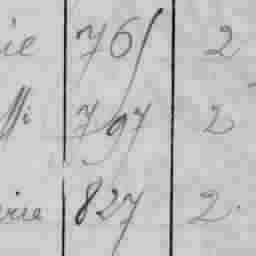 ie 765 2
ffi 797 2
erie 827 2